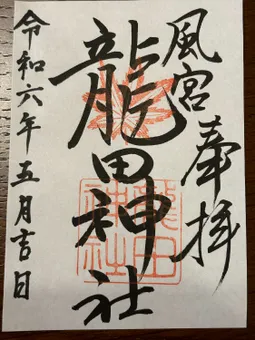 風宮奉拝
龍田神社
令和六年五月吉日
龍田
神社